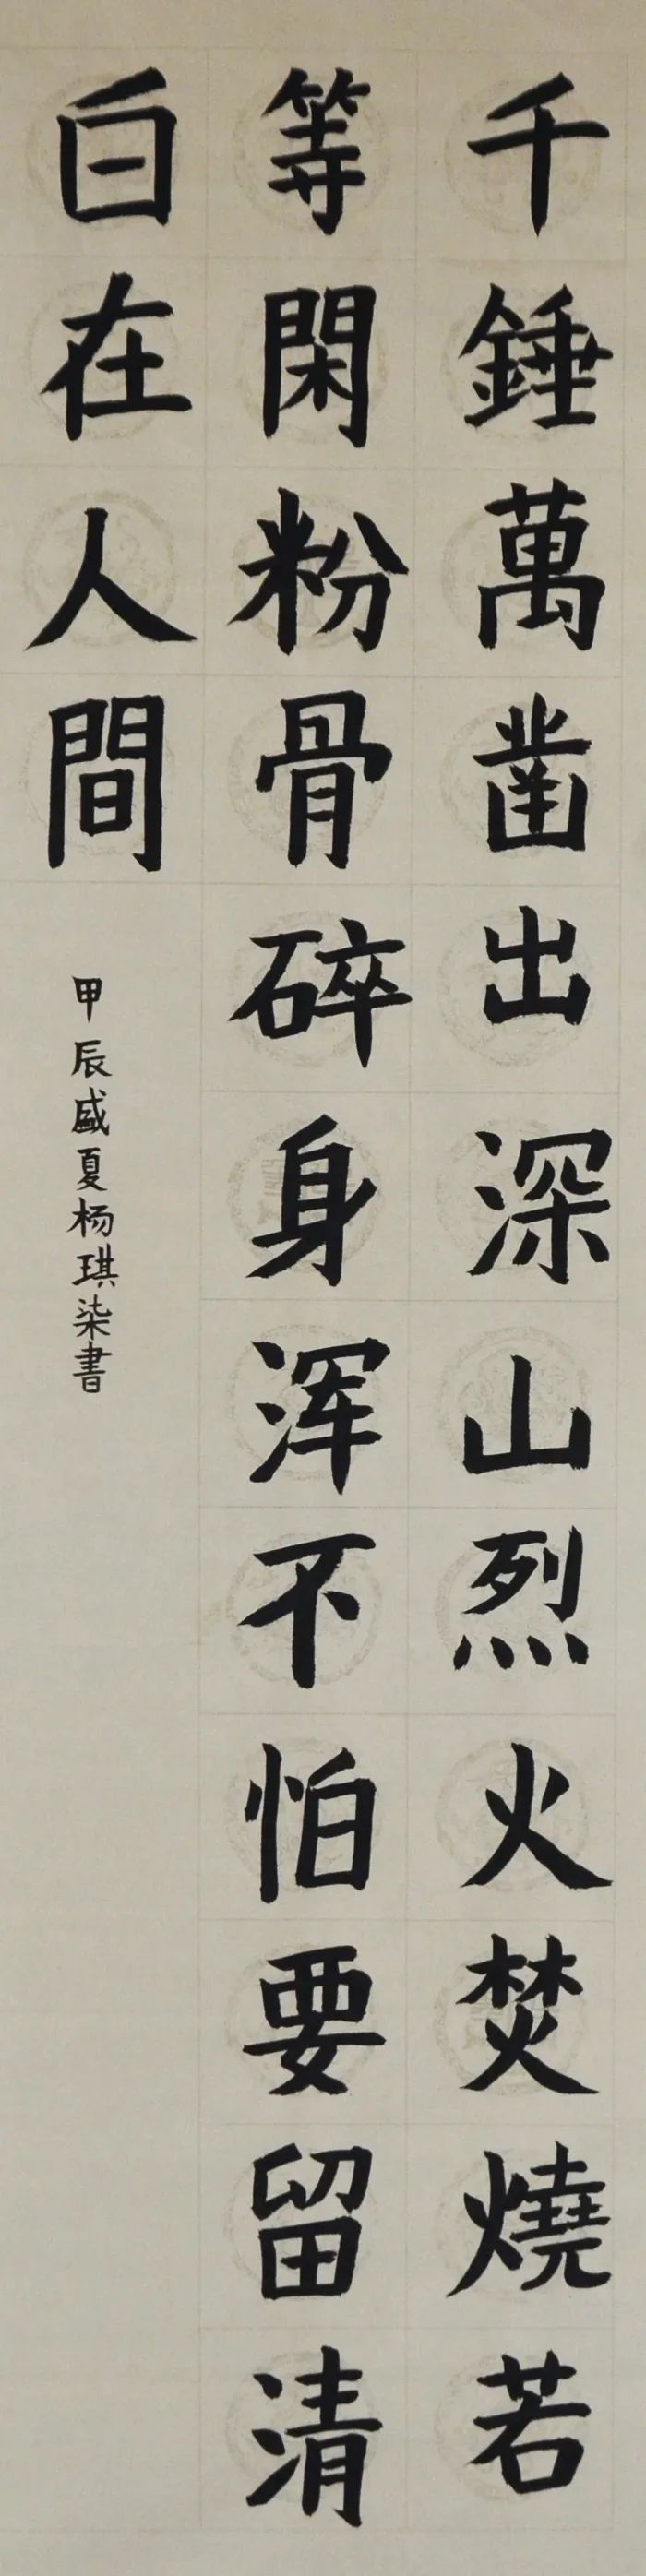 千錘萬凿出深山烈火焚燒若
等閑粉骨碎身浑不怕要留清
白在人間
甲辰盛夏杨琪柒書